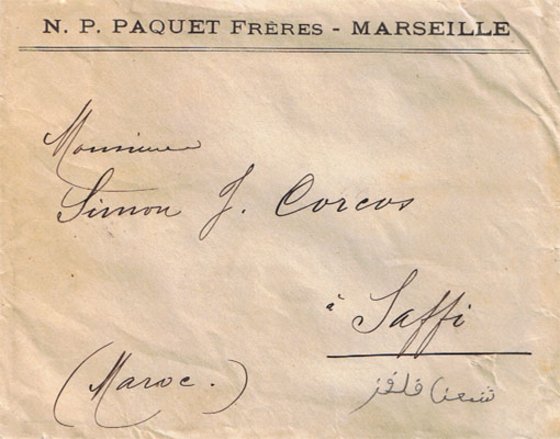 N. P. PAQUET FRÈRES - MARSEILLE
Monsieur
Simon J. Corcos
à Saffi
(Maroc.)